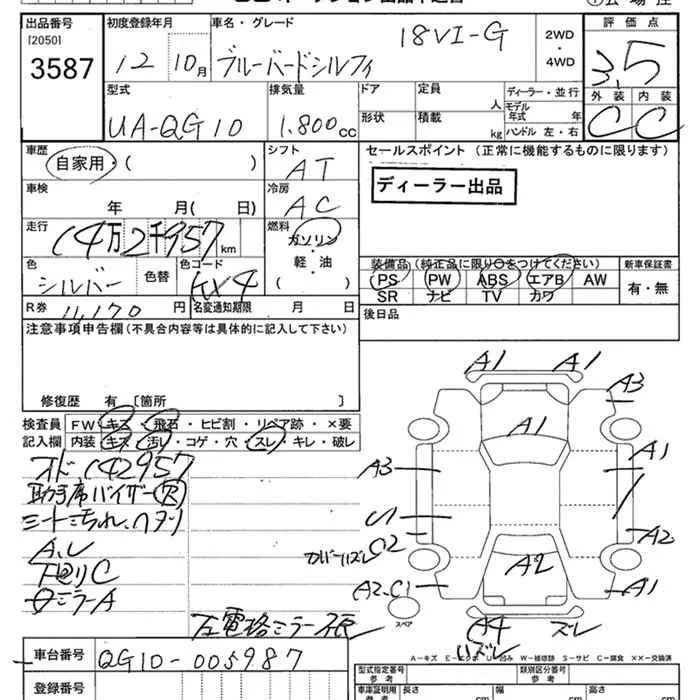 出品番号 初度登録年月 車名・グレード 18VI-G 2WD・4WD 評価点
[2050]
3587 12 10月 ブルーバードシルフィ 3.5
型式 排気量 ドア 定員 人 ディーラー・並行 外装 内装
UA-QG10 1.800cc 形状 積載 kg モデル年式 年 ハンドル 左・右 C C
車歴 シフト セールスポイント (正常に機能するものに限ります)
自家用・( ) AT
車検 冷房 ディーラー出品
年 月( 日) AC
走行 燃料
14万2千957km ガソリン・軽・油 ( )
装備品 (純正品に限り○をつけてください) 新車保証書
色 色替 色コード PS PW ABS エアB AW 有・無
シルバー KX4 SR ナビ TV カワ
R券 11,170円 名変通知期限 月 日 後日品
注意事項申告欄(不具合内容等は具体的に記入して下さい)
修復歴 有 [箇所 ]
検査員 FW キズ・飛石・ヒビ割・リペア跡・×要
記入欄 内装 キズ・汚レ・コゲ・穴・スレ・キレ・破レ
メド 142957
助手席バイザー
シート汚れ、ヘタリ
A.
下廻りC
ミラーA
左電格ミラー
A1 A1
A3
A1
A1
A3
U1
U2
A2
A2
A2.C1
A1
スペア
A4
ズレ
A-キズ E-エクボ U-凹み W-補修跡 S-サビ C-腐食 ××-交換済
車台番号 QG10-005987
登録番号
型式指定番号 参考 類別区分番号 参考
車庫証明用 参考 長さ cm 幅 cm 高さ cm